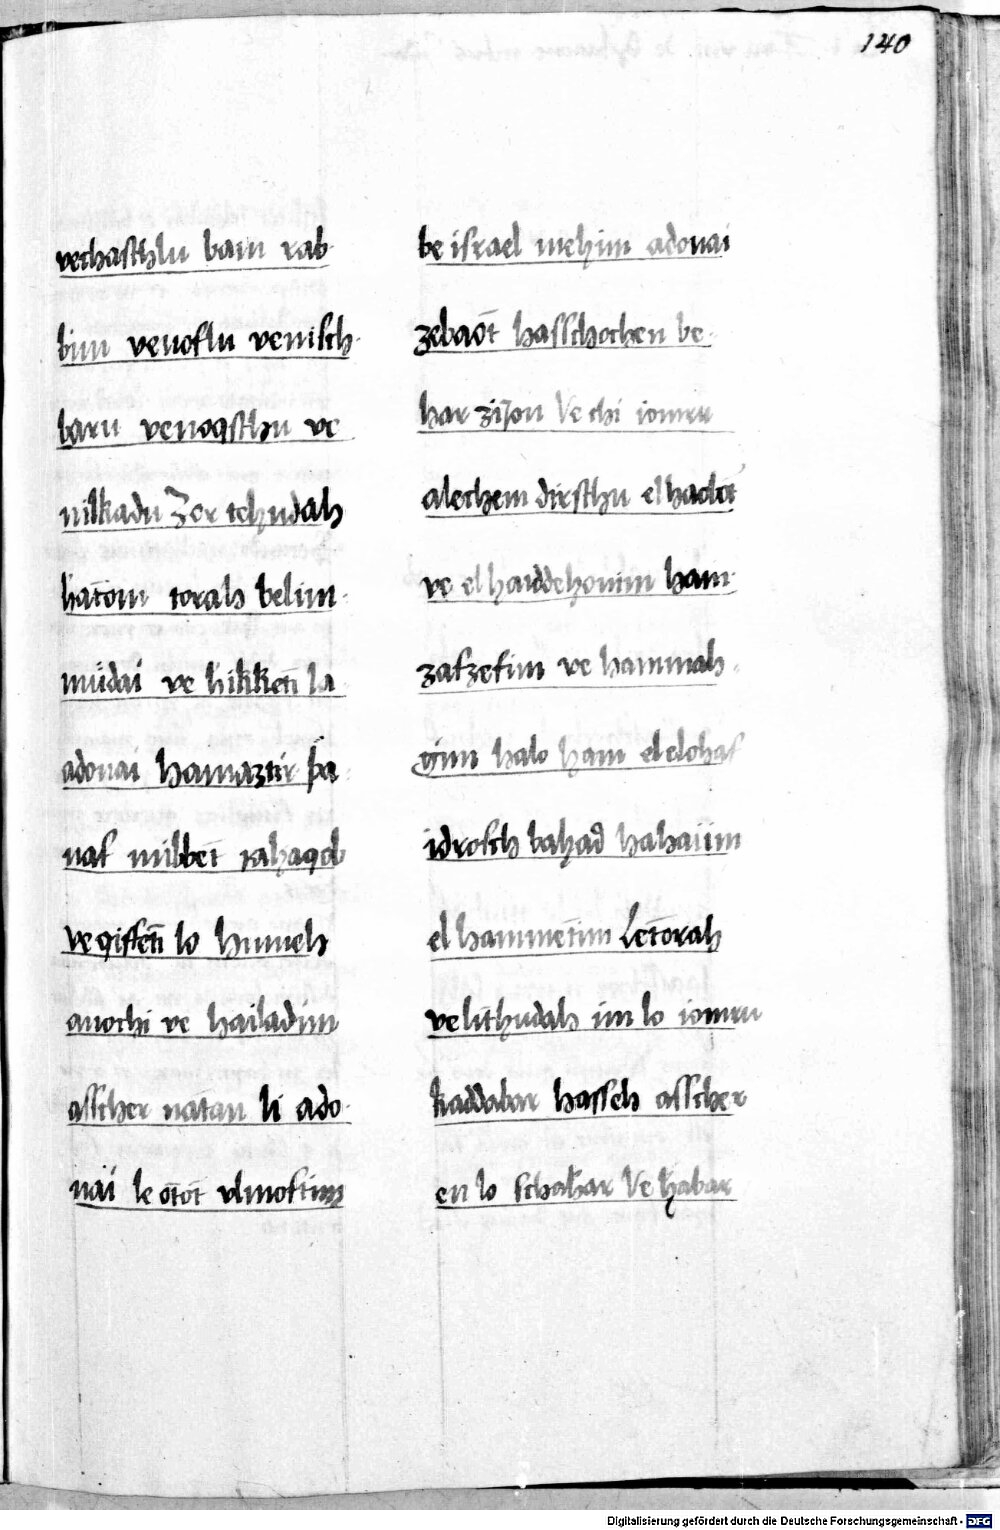 140
vechasthlu bam rab-
bim venoflu venisch-
baru venoqsthu ve
nilkadu Zor tehudah
hatom torah belim-
mudai ve hikketi la
adonai hamaztir pa-
naf mibbet jahaqob
veqisseti lo hinneh
anochi ve hailadim
asscher natan li ado-
nai le otot vlmoftim
be israel mehim adonai
zebaot hasschochen be-
har zijon Ve chi iomru
alechem dirsthu el haobot
ve el haiddehonim ham-
zafzefim ve hammah-
gim halo ham el elohaf
idrosch bahad hahaiim
el hammetim Letorah
velithudah im lo iomru
kaddabar hasseh asscher
en lo schahar Ve habar
Digitalisierung gefördert durch die Deutsche Forschungsgemeinschaft - DFG